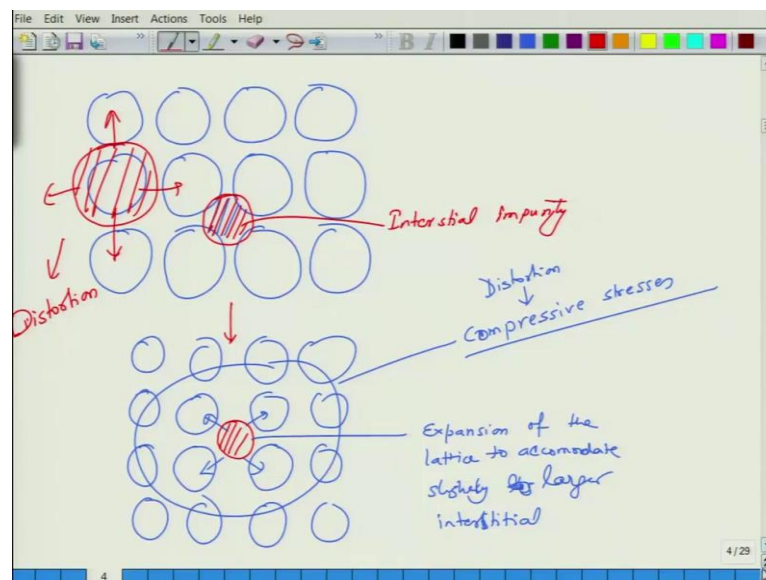 File Edit View Insert Actions Tools Help
B I
Interstial impurity
Distortion
Distortion
Compressive stresses
Expansion of the
lattice to accomodate
slightly larger
interstitial
4/29
4